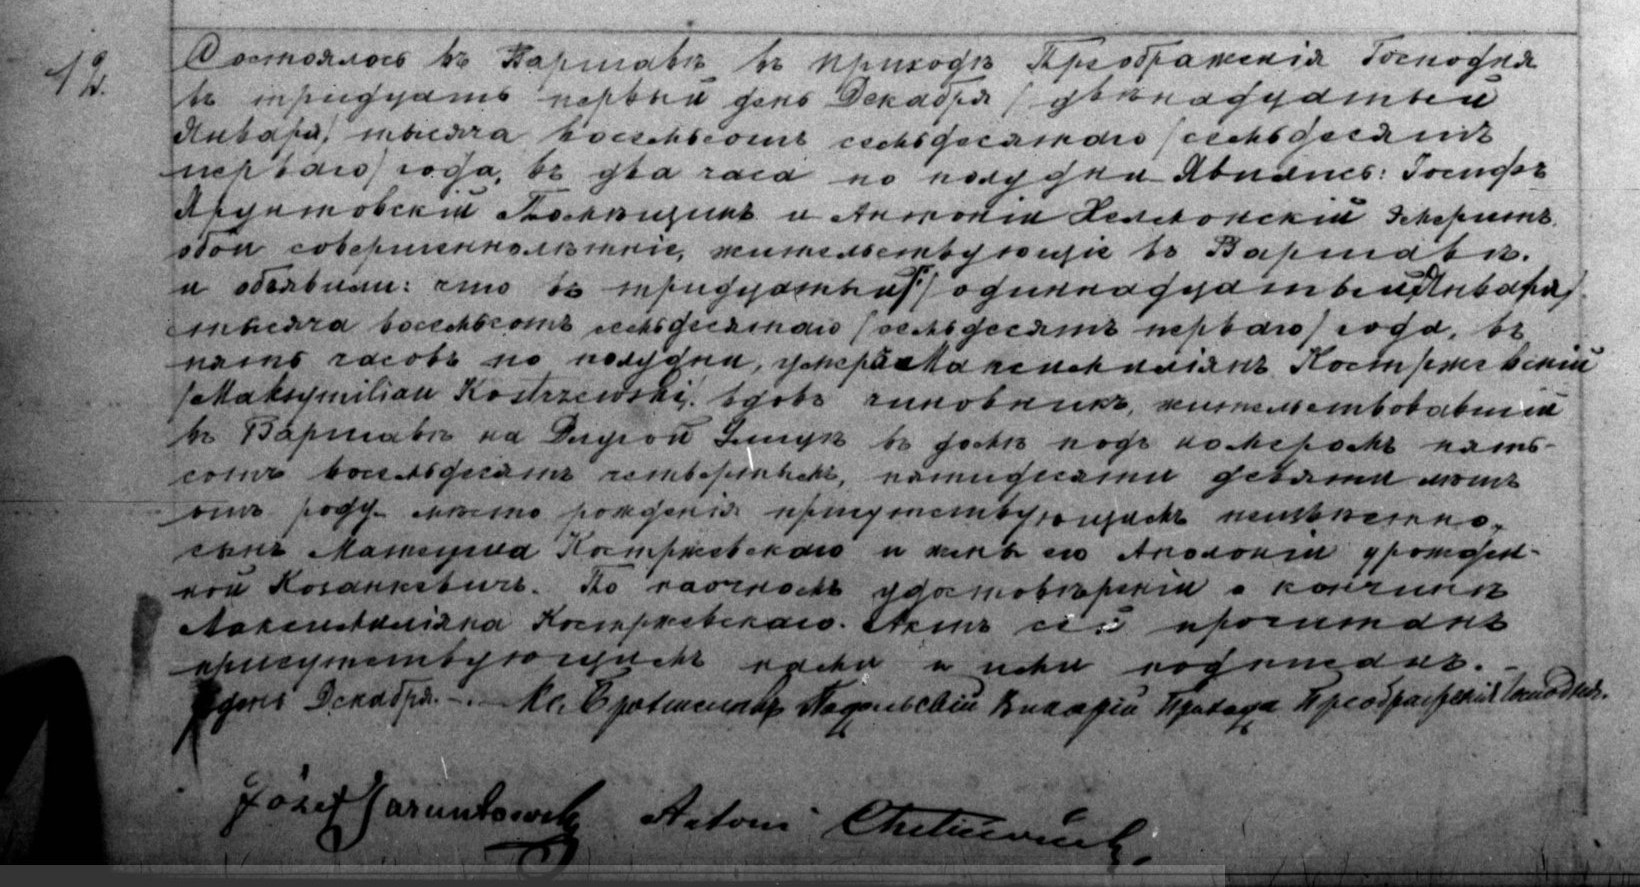 12.
Состоялось въ Варшавѣ въ приходѣ Преображенія Господня
въ тридцать первый день Декабря /двѣнадцатый
Января/ тысяча восемьсотъ семьдесятаго /семьдесятъ
перваго/ года, въ два часа по полудни Явились: Іосифъ
Ярунтовскій Помѣщикъ и Антоній Хелмонскій Эмеритъ
обои совершеннолѣтніе, жительствующіе въ Варшавѣ.
и объявили: что въ тридцатый /одиннадцатый Января/
тысяча восемьсотъ семьдесятаго /семьдесятъ перваго/ года, въ
пять часовъ по полудни, умеръ Максимиліянъ Костржевскій
/Maksymilian Kostrzewski/ вдовъ чиновникъ, жительствовавшій
въ Варшавѣ на Длугой Улицѣ въ домѣ подъ номеромъ пять-
сотъ восемьдесятъ четвертымъ, пятидесяти девяти лѣтъ
отъ роду место рожденія присутствующимъ неизвѣстно,
сынъ Матеуша Костржевскаго и жены его Аполоніи урожден-
ной По наочномъ удостовѣреніи о кончинѣ
Максимиліяна Костржевскаго. Актъ сей прочитанъ
присутствующимъ нами и ими подписанъ.
день Декабря. Кс. Викарій Прихода Преображенія Господня.
Józef Jaruntowski Antoni